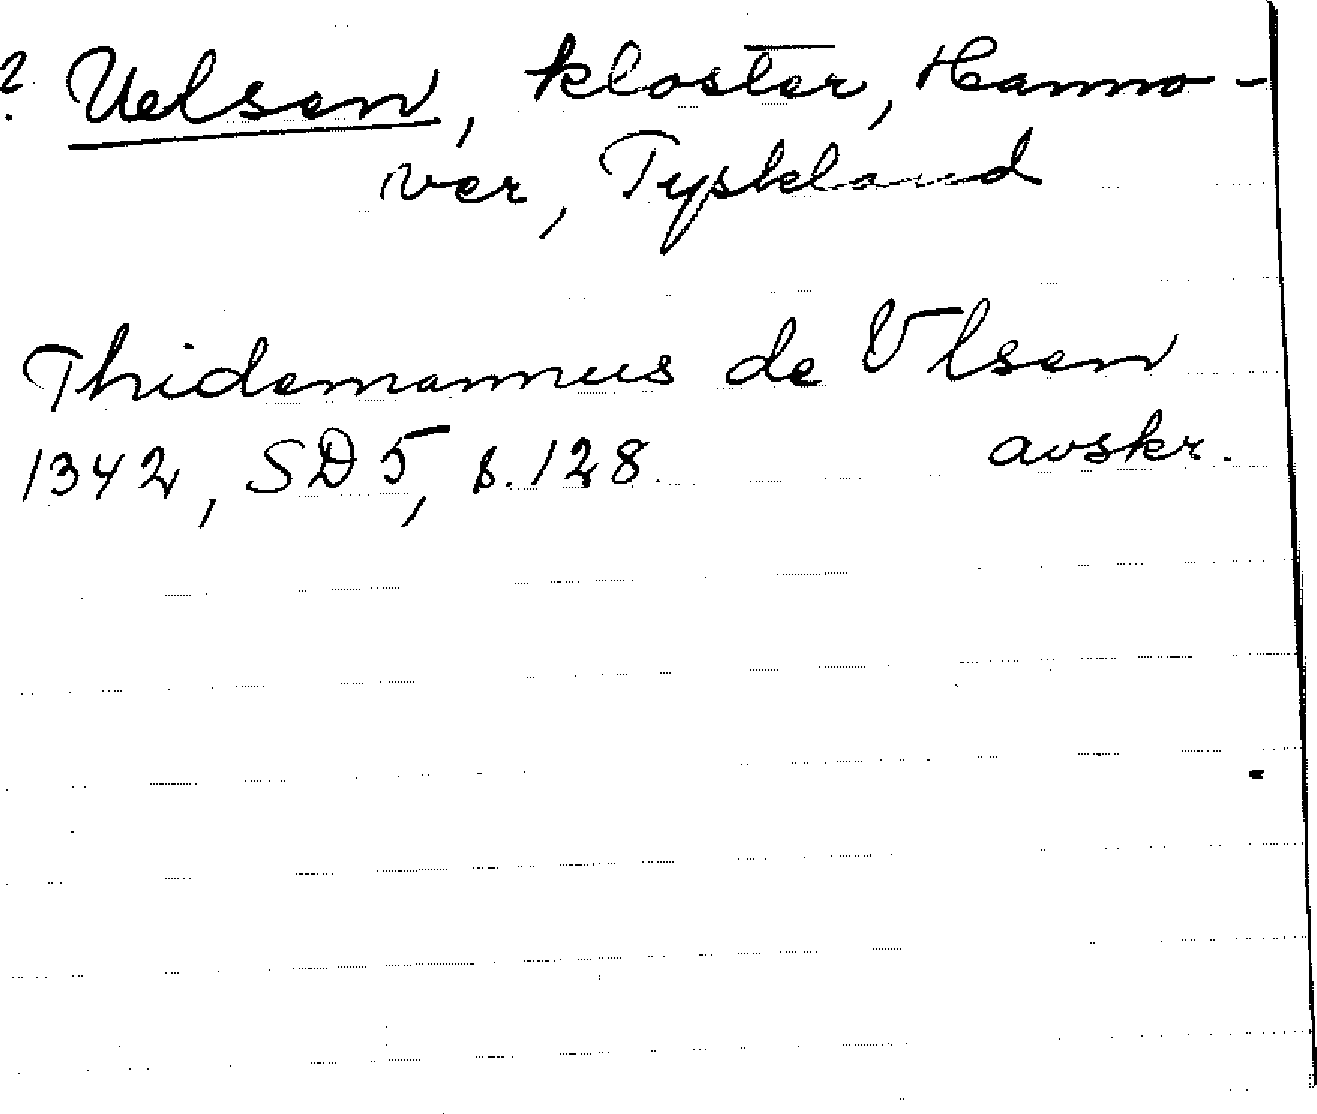 ? Uelsen, kloster, Hanno-
ver, Tyskland
Thidemannus de Vlsen
1342, SD 5, s. 128 avskr.